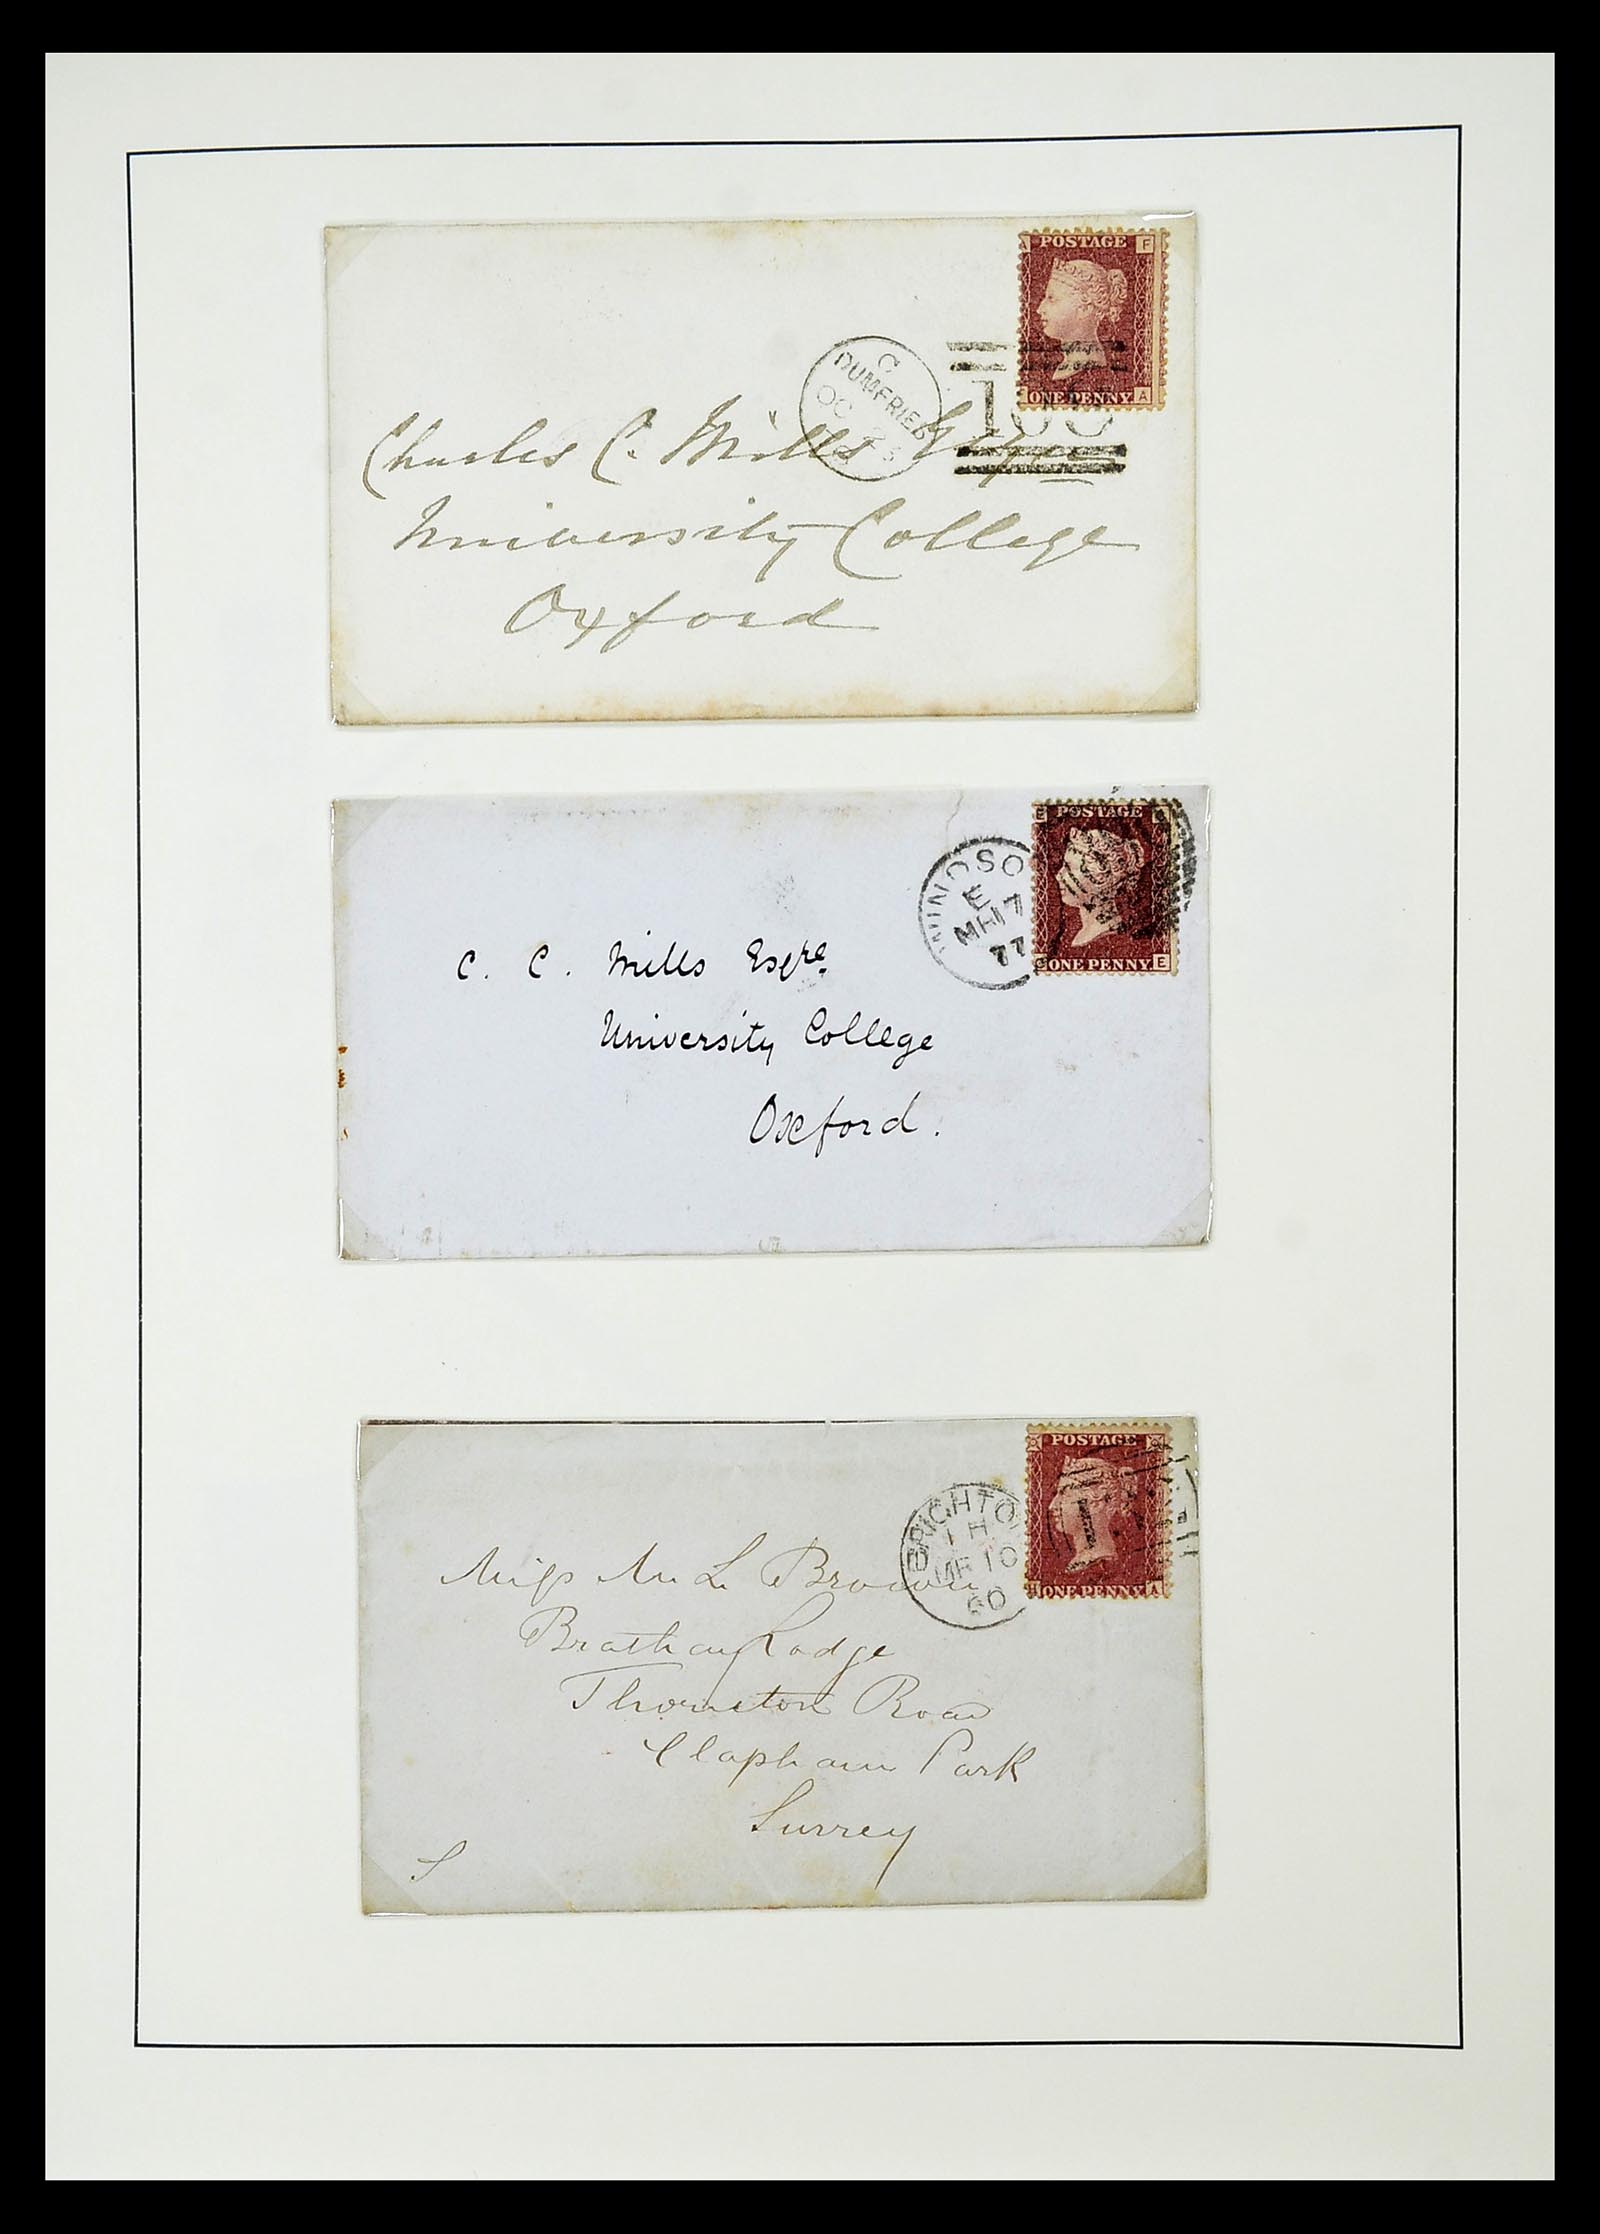 POSTAGE
A F
ONE PENNY
A
C
DUMFRIES
OC 23
Charles C. Mills Esqre
University College
Oxford
POSTAGE
ONE PENNY
E
WINDSO
E
MR 17
77
C. C. Mills Esqre.
University College
Oxford.
POSTAGE
H ONE PENNY A
BRIGHTO
1 H
MR 10
60
Miss M L Brown
Brathay Lodge
Thornton Road
Clapham Park
Surrey
S